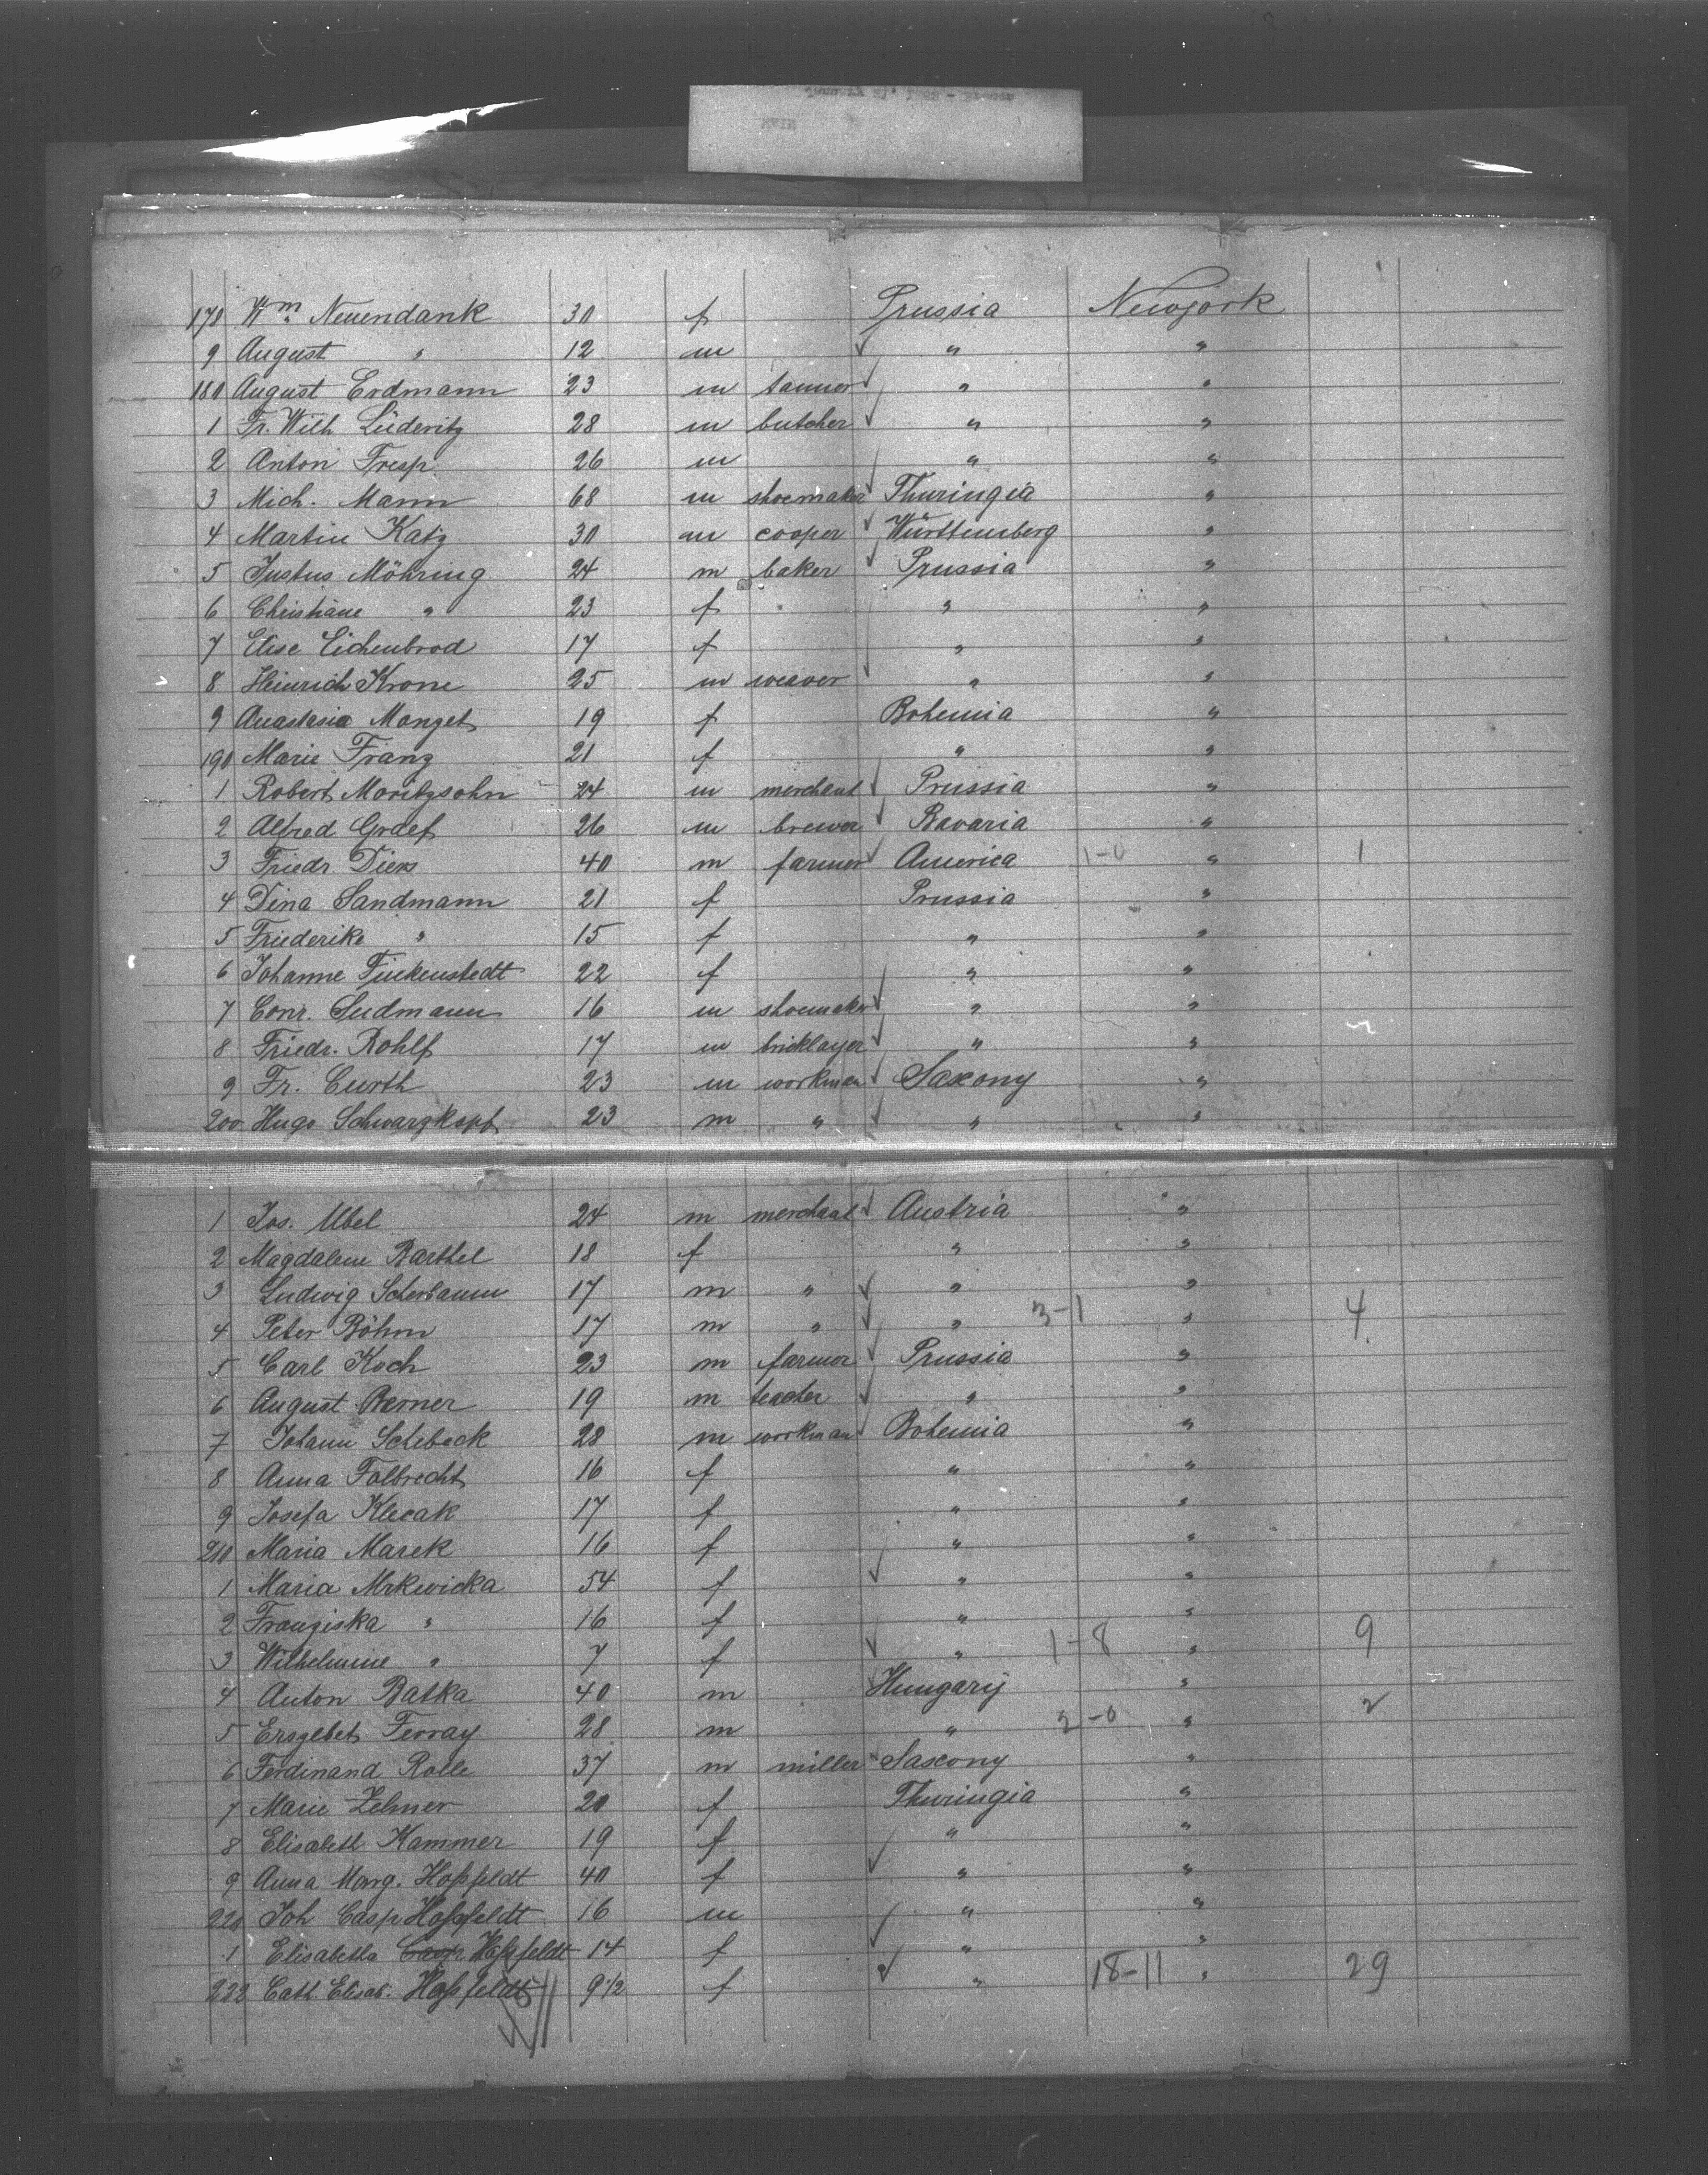 178 Wm. Neuendank 30 f Prussia Newyork
9 August " 12 m " "
180 August Erdmann 23 m tanner " "
1 Fr. Wilh Lüderitz 28 m butcher " "
2 Anton Fresp 26 m " "
3 Mich. Mann 68 m shoemaker Thuringia "
4 Martin Katz 30 m cooper Württemberg "
5 Justus Möhring 24 m baker Prussia "
6 Christiane " 23 f " "
7 Elise Eichenbrod 17 f " "
8 Heinrich Krone 25 m weaver " "
9 Anastasia Manget 19 f Bohemia "
190 Marie Franz 21 f " "
1 Robert Moritzsohn 24 m merchant Prussia "
2 Alfred Graef 26 m brewer Bavaria "
3 Friedr. Diers 40 m farmer America 1-0 " 1
4 Dina Sandmann 21 f Prussia "
5 Friederike " 15 f " "
6 Johanne Finkenstedt 22 f " "
7 Conr. Sudmann 16 m shoemaker " "
8 Friedr. Rohlf 17 m bricklayer " "
9 Fr. Curth 23 m workman Saxony "
200 Hugo Schwarzkopf 23 m " " "
1 Jos. Ubel 24 m merchant Austria "
2 Magdalene Barthel 18 f " "
3 Ludwig Scherbaum 17 m " " "
4 Peter Böhm 17 m " " 3-1 " 4
5 Carl Koch 23 m farmer Prussia "
6 August Berner 19 m teacher " "
7 Johann Schebeck 28 m workman Bohemia "
8 Anna Folbrecht 16 f " "
9 Josefa Klecak 17 f " "
210 Maria Marek 16 f " "
1 Maria Mrkwicka 54 f " "
2 Franziska " 16 f " "
3 Wilhelmine " 7 f " 1-8 " 9
4 Anton Batka 40 m Hungary "
5 Erszebet Ferray 28 m " 2-0 " 2
6 Ferdinand Rolle 37 m miller Saxony "
7 Marie Zelmer 20 f Thuringia "
8 Elisabeth Kammer 19 f " "
9 Anna Marg. Hoßfeldt 40 f " "
220 Joh Casp Hoßfeldt 16 m " "
1 Elisabetha Casp Hoßfeldt 14 f " "
222 Cath. Elisab. Hoßfeldt 9 1/2 f " 18-11 " 29